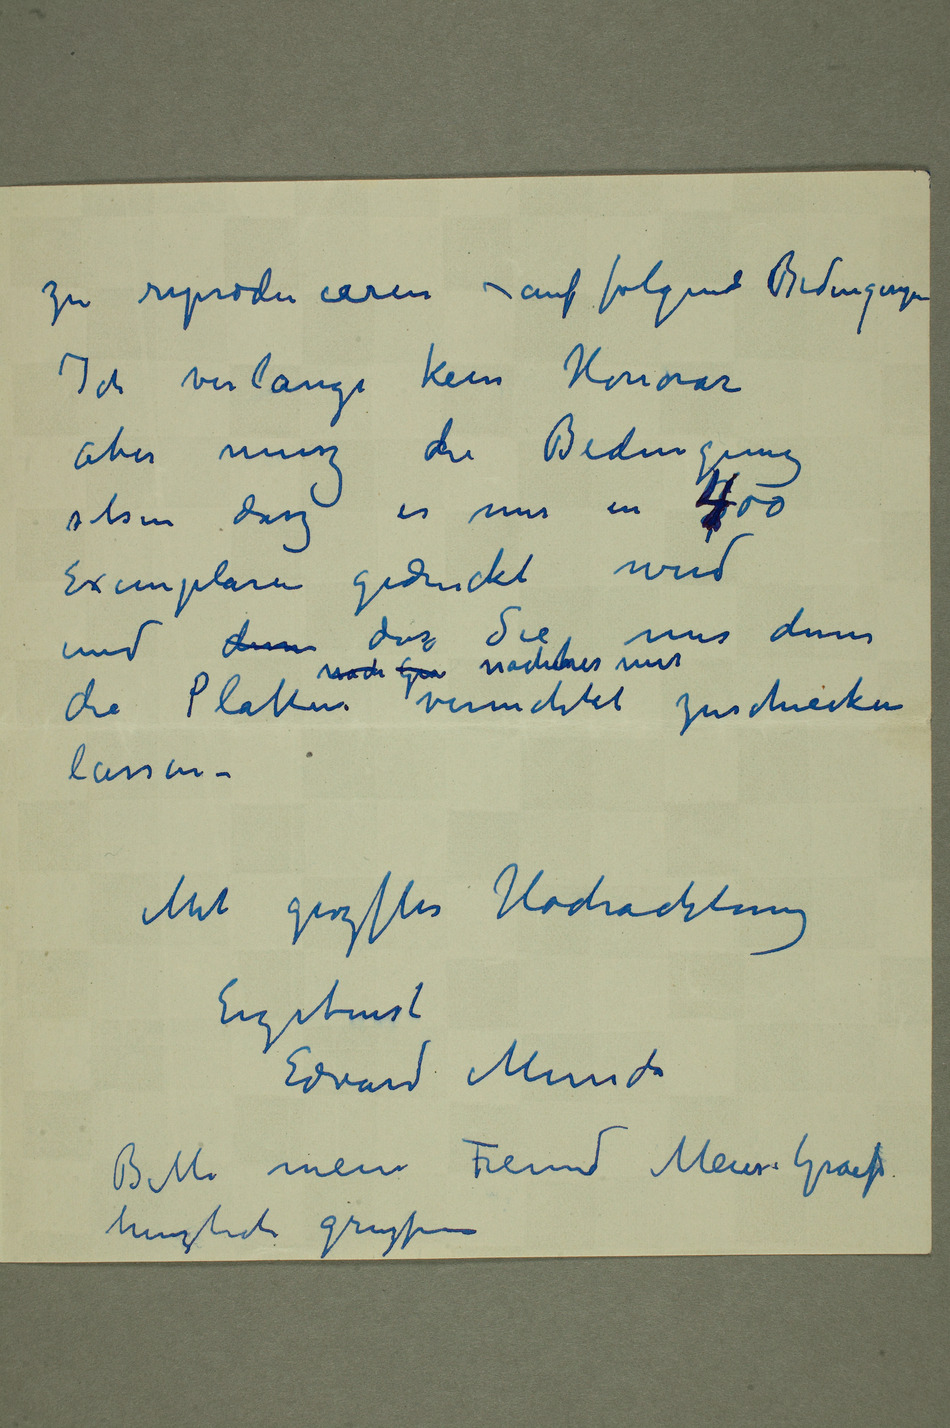 zu reproducieren – auf folgende Bedingungen
Ich verlange kein Honorar
aber musz die Bedingung
setsen dasz es nur in 400
Exemplaren gedruckt wird
und dann dasz Sie mir dann
nachher mir
die Platten vernichtet zuschicken
lassen –
Mit grozster Hochachtung
Ergebenst
Edvard Munch
Bitte mein Freund Meier-Graefe
herzlich gruszen